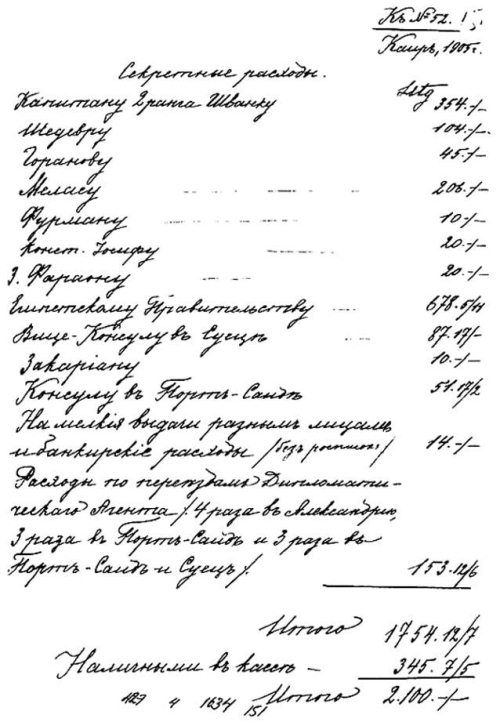 Къ № 52.
Каиръ, 1905 г.
Секретные расходы.
Lstg
Капитану 2 ранга Шванку 354.-/-
Шедевру 104.-/-
Горанову 45.-/-
Меласу 206.-/-
Фурману 10.-/-
Конст. Іосифу 20.-/-
З. Фараону 20.-/-
Египетскому Правительству 678.5/11
Вице-Консулу въ Суецѣ 87.17/-
Закаріану 10.-/-
Консулу въ Портъ-Саидѣ 51.17/2
На мелкія выдачи разнымъ лицамъ
и банкирскіе расходы /безъ росписокъ/ 14.-/-
Расходы по переѣздамъ Дипломати-
ческаго Агента /4 раза въ Александрію,
3 раза въ Портъ-Саидъ и 3 раза въ
Портъ-Саидъ и Суецъ/. 153.12/6
Итого 1754.12/7
Наличными въ кассѣ - 345.7/5
Итого 2.100.-/-
127 4 1634 151